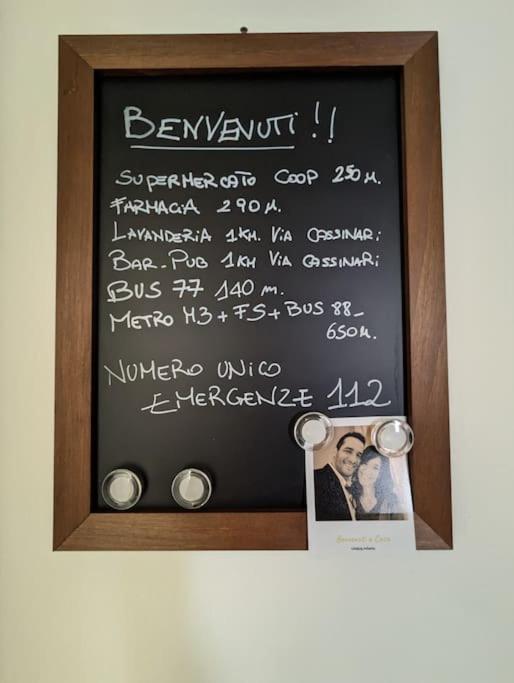 BENVENUTI!!
SUPERMERCATO COOP 250 M.
FARMACIA 290 M.
LAVANDERIA 1KM. VIA CASSINARI
BAR-PUB 1KM VIA CASSINARI
BUS 77 140 m.
METRO M3 + FS + BUS 88-
650 M.
NUMERO UNICO
EMERGENZE 112
Benvenuti a Casa